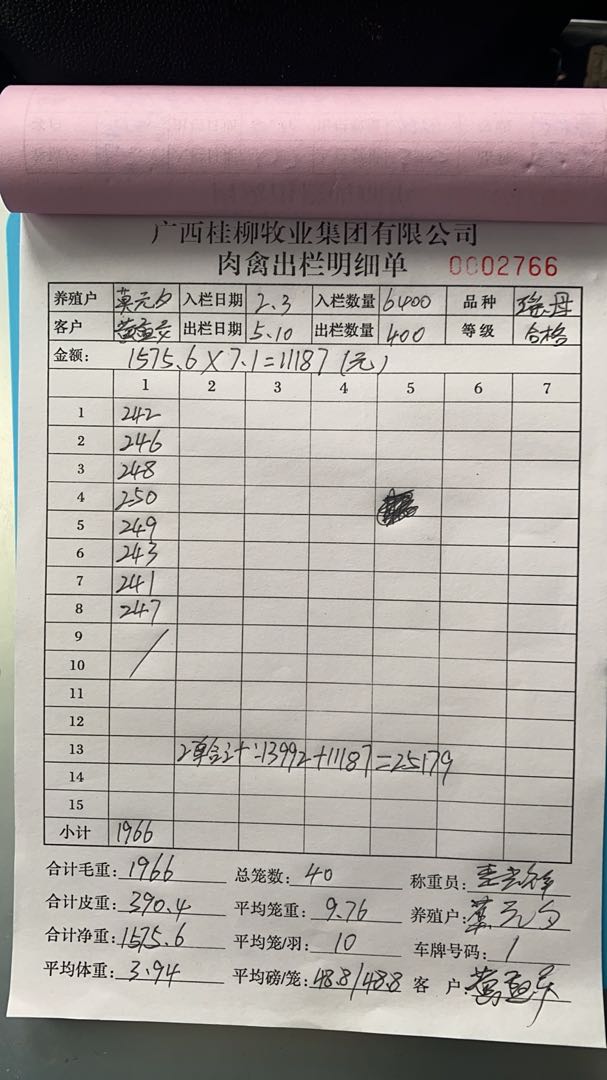 广西桂柳牧业集团有限公司
肉禽出栏明细单 0002766
养殖户 入栏日期 2.3 入栏数量 6400 品种
客户 出栏日期 5.10 出栏数量 400 等级 合格
金额: 1575.6×7.1=11187(元)
1 2 3 4 5 6 7
1 242
2 246
3 248
4 250
5 249
6 243
7 241
8 247
9
10 /
11
12
13 2单合计:13992+11187=25179
14
15
小计 1966
合计毛重: 1966 总笼数: 40 称重员:
合计皮重: 390.4 平均笼重: 9.76 养殖户:
合计净重: 1575.6 平均笼/羽: 10 车牌号码: 1
平均体重: 3.94 平均磅/笼: 48.8/48.8 客户: